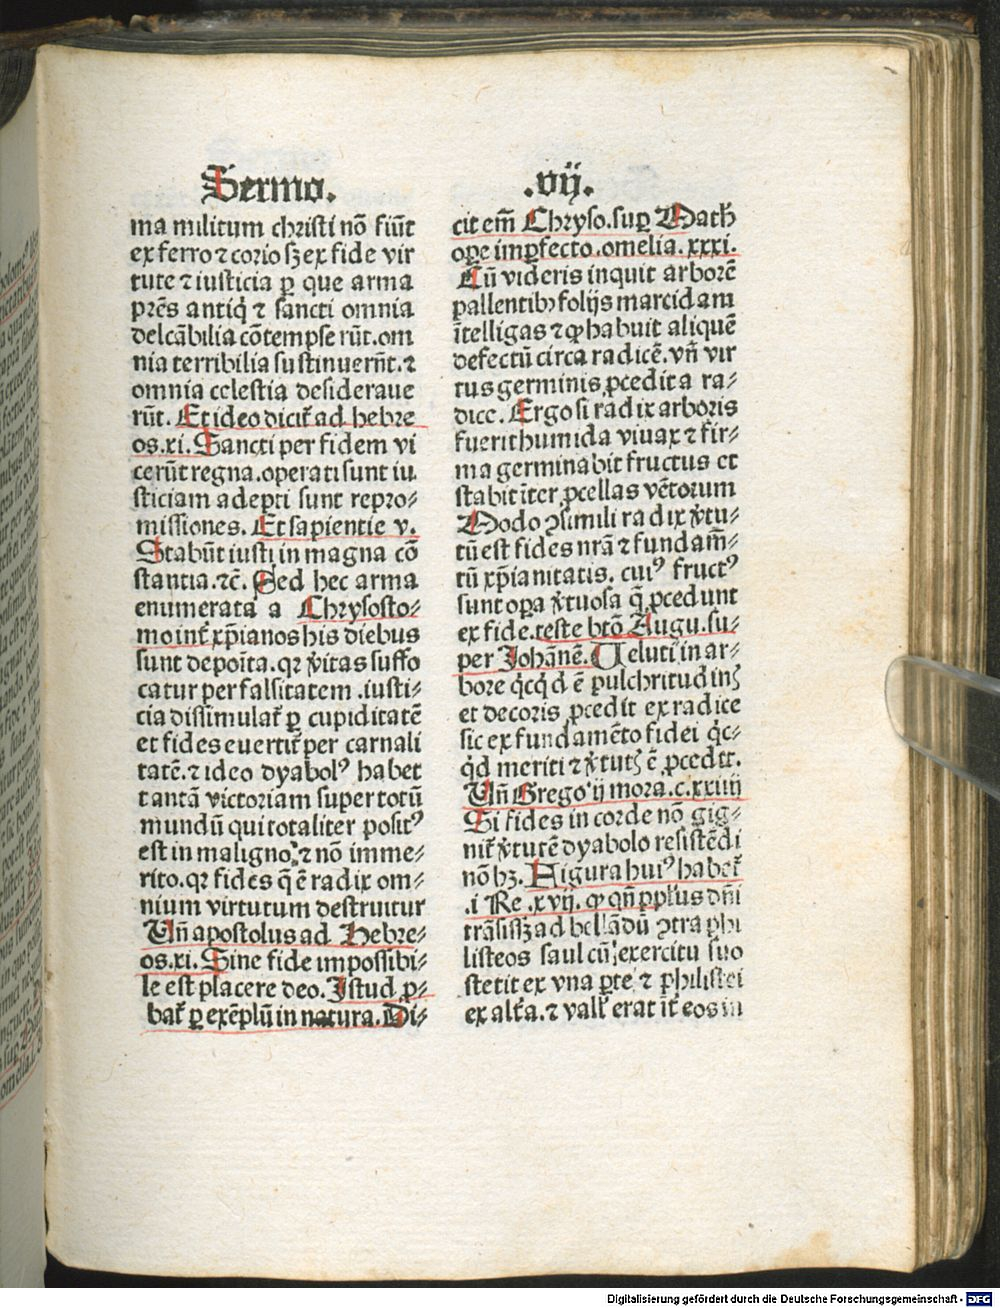 Sermo. .vij.
ma militum christi nō fiūt
ex ferro ⁊ corio sꝫ ex fide vir
tute ⁊ iusticia ꝑ que arma
prēs antiq̇ ⁊ sancti omnia
delcābilia cōtempse rūt.om
nia terribilia sustinuerūt.⁊
omnia celestia desideraue
rūt. Et ideo dicit̄ ad hebre
os.xi. Sancti per fidem vi
cerūt regna.operati sunt iu
sticiam adepti sunt repro⸗
missiones. Et sapientie v.
Stabūt iusti in magna cō
stantia.⁊c̄. Sed hec arma
enumerata a Chrysosto⸗
mo int̄ xp̄ianos his diebus
sunt depoīta.qꝛ v̄itas suffo
catur per falsitatem .iusti⸗
cia dissimulat̄ ꝑ cupiditatē
et fides euertit̄ per carnali
tatē.⁊ ideo dyabolꝰ habet
tantā victoriam super totū
mundū qui totaliter positꝰ
est in maligno.⁊ nō imme⸗
rito.qꝛ fides q̄ ē radix om⸗
nium virtutum destruitur
Vn̄ apostolus ad Hebre⸗
os.xi. Sine fide impossibi⸗
le est placere deo. Istud ꝓ⸗
bat̄ ꝑ exēplū in natura. Di⸗
cit em̄ Chryso.suꝑ Math̄
oꝑe imꝑfecto.omelia.xxxi.
Cū videris inquit arborē
pallentibꝫ folijs marcidam
ītelligas ⁊ ꝙ habuit aliquē
defectū circa radicē.vn̄ vir
tus germinis ꝓcedit a ra⸗
dice. Ergo si radix arboris
fuerit humida viuax ⁊ fir⸗
ma germinabit fructus et
stabit īter ꝓcellas vētorum
Modo ꝯsimili radix v̄tu⸗
tū est fides nrā ⁊ fundam̄⸗
tū xp̄ianitatis. cuiꝰ fructꝰ
sunt oꝑa v̄tuosa q̄ ꝓcedunt
ex fide.teste btō Augu.su⸗
per Johānē. Veluti in ar⸗
bore q̇cq̇d ē pulchritudinꝭ
et decoris ꝓcedit ex radice
sic ex fundamēto fidei q̇c⸗
q̇d meriti ⁊ v̄tutꝭ ē ꝓcedit.
Vn̄ Grego ij mora.c.xxiiij
Si fides in corde nō gig⸗
nit̄ v̄tutē dyabolo resistēdi
nō hꝫ. Figura huiꝰ habet̄
.i Re .xvij. ꝙ qn̄ pp̄lus dn̄i
trāsissꝫ ad bellādū ꝯtra phi
listeos saul cū exercitu suo
stetit ex vna ꝑte ⁊ philistei
ex alt̄a.⁊ vall̄ erat īt̄ eos in
Digitalisierung gefördert durch die Deutsche Forschungsgemeinschaft - DFG